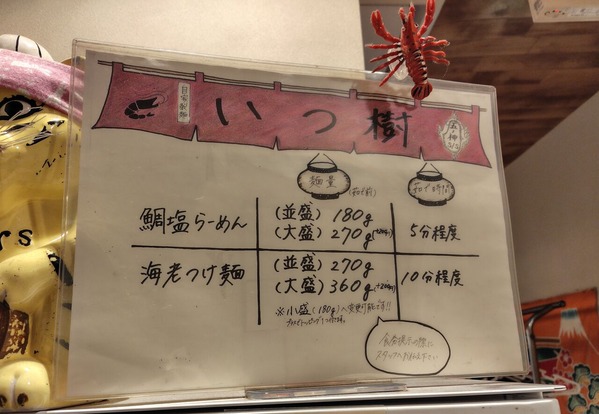 自家製麺
いつ樹
麺量
(ゆで前)
ゆで時間
鯛塩らーめん
(並盛) 180g
(大盛) 270g
5分程度
海老つけ麺
(並盛) 270g
(大盛) 360g
10分程度
※小盛(180g)へ変更可能です!!
食券提示の際に
スタッフへお伝え下さい